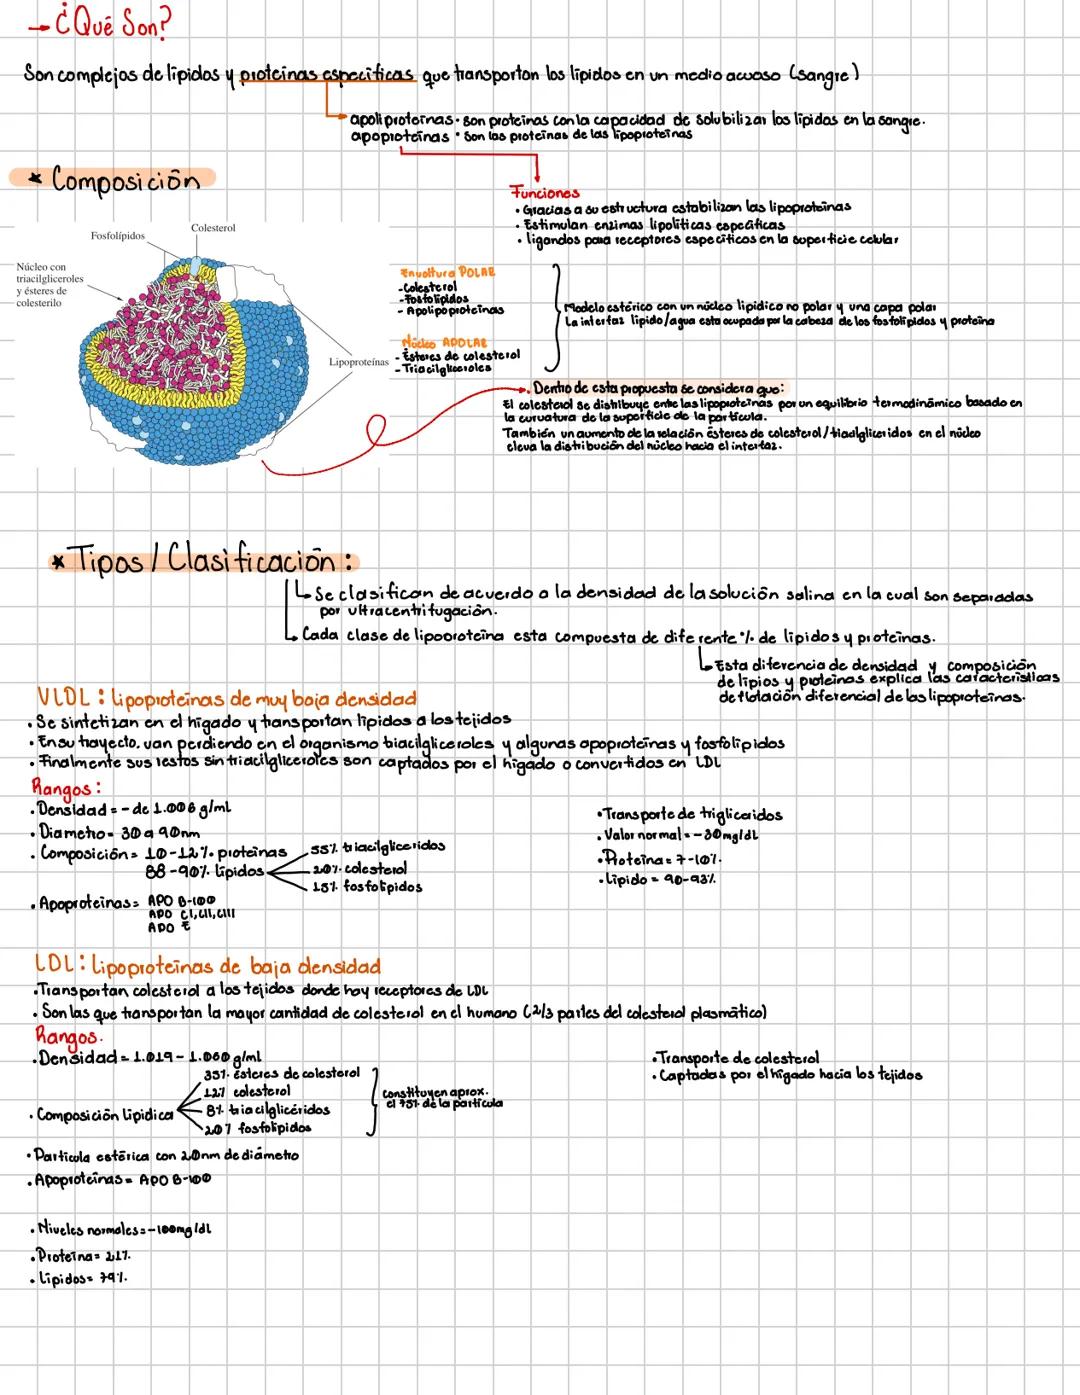 → ¿Qué Son?
Son complejos de lípidos y proteínas específicas que transportan los lípidos en un medio acuoso (sangre)
apoliproteínas · son proteínas con la capacidad de solubilizar los lípidos en la sangre.
apoproteínas · son las proteínas de las lipoproteínas
* Composición
Funciones
• Gracias a su estructura estabilizan las lipoproteínas
• Estimulan enzimas lipolíticas específicas
• ligandos para receptores específicos en la superficie celular
Fosfolípidos
Colesterol
Núcleo con
triacilgliceroles
y ésteres de
colesterilo
Lipoproteínas
Envoltura POLAR
- Colesterol
- Fosfolípidos
- Apolipoproteínas
Núcleo APOLAR
- Ésteres de colesterol
- Triacilgliceroles
Modelo esférico con un núcleo lipídico no polar y una capa polar
La interfaz lípido/agua esta ocupada por la cabeza de los fosfolípidos y proteína
• Dentro de esta propuesta se considera que:
El colesterol se distribuye entre las lipoproteínas por un equilibrio termodinámico basado en
la curvatura de la superficie de la partícula.
También un aumento de la relación ésteres de colesterol/triaglicéridos en el núcleo
eleva la distribución del núcleo hacia el interfaz.
* Tipos / Clasificación:
Se clasifican de acuerdo a la densidad de la solución salina en la cual son separadas
por ultracentrifugación.
Cada clase de lipooroteína esta compuesta de diferente % de lípidos y proteínas.
Esta diferencia de densidad y composición
de lipios y proteínas explica las características
de flotación diferencial de las lipoproteínas.
VLDL: Lipoproteínas de muy baja densidad
• Se sintetizan en el hígado y transportan lípidos a los tejidos
• En su trayecto, van perdiendo en el organismo triacilgliceroles y algunas apoproteínas y fosfolípidos
• Finalmente sus restos sin triacilgliceroles son captados por el hígado o convertidos en LDL
Rangos:
• Densidad = - de 1.006 g/ml
• Diametro = 30 a 90nm
• Composición = 10-12% proteínas
88-90% lípidos
55% triacilgliceridos
20% colesterol
15% fosfolípidos
• Apoproteínas = APO B-100
APO CI, CII, CIII
APO E
• Transporte de trigliceridos
• Valor normal = - 30mg/dL
• Proteína = 7-10%
• Lípido = 90-93%
LDL: Lipoproteínas de baja densidad
• Transportan colesterol a los tejidos donde hay receptores de LDL
• Son las que transportan la mayor cantidad de colesterol en el humano (2/3 partes del colesterol plasmático)
Rangos.
• Densidad = 1.019 - 1.060 g/ml
• Composición lipídica
35% ésteres de colesterol
12% colesterol
8% triacilglicéridos
20% fosfolípidos
constituyen aprox.
el 75% de la partícula
• Partícula esférica con 20nm de diámetro
• Apoproteínas = APO B-100
• Niveles normales = -100mg/dL
• Proteína = 21%
• Lípidos = 79%
• Transporte de colesterol
• Captadas por el hígado hacia los tejidos